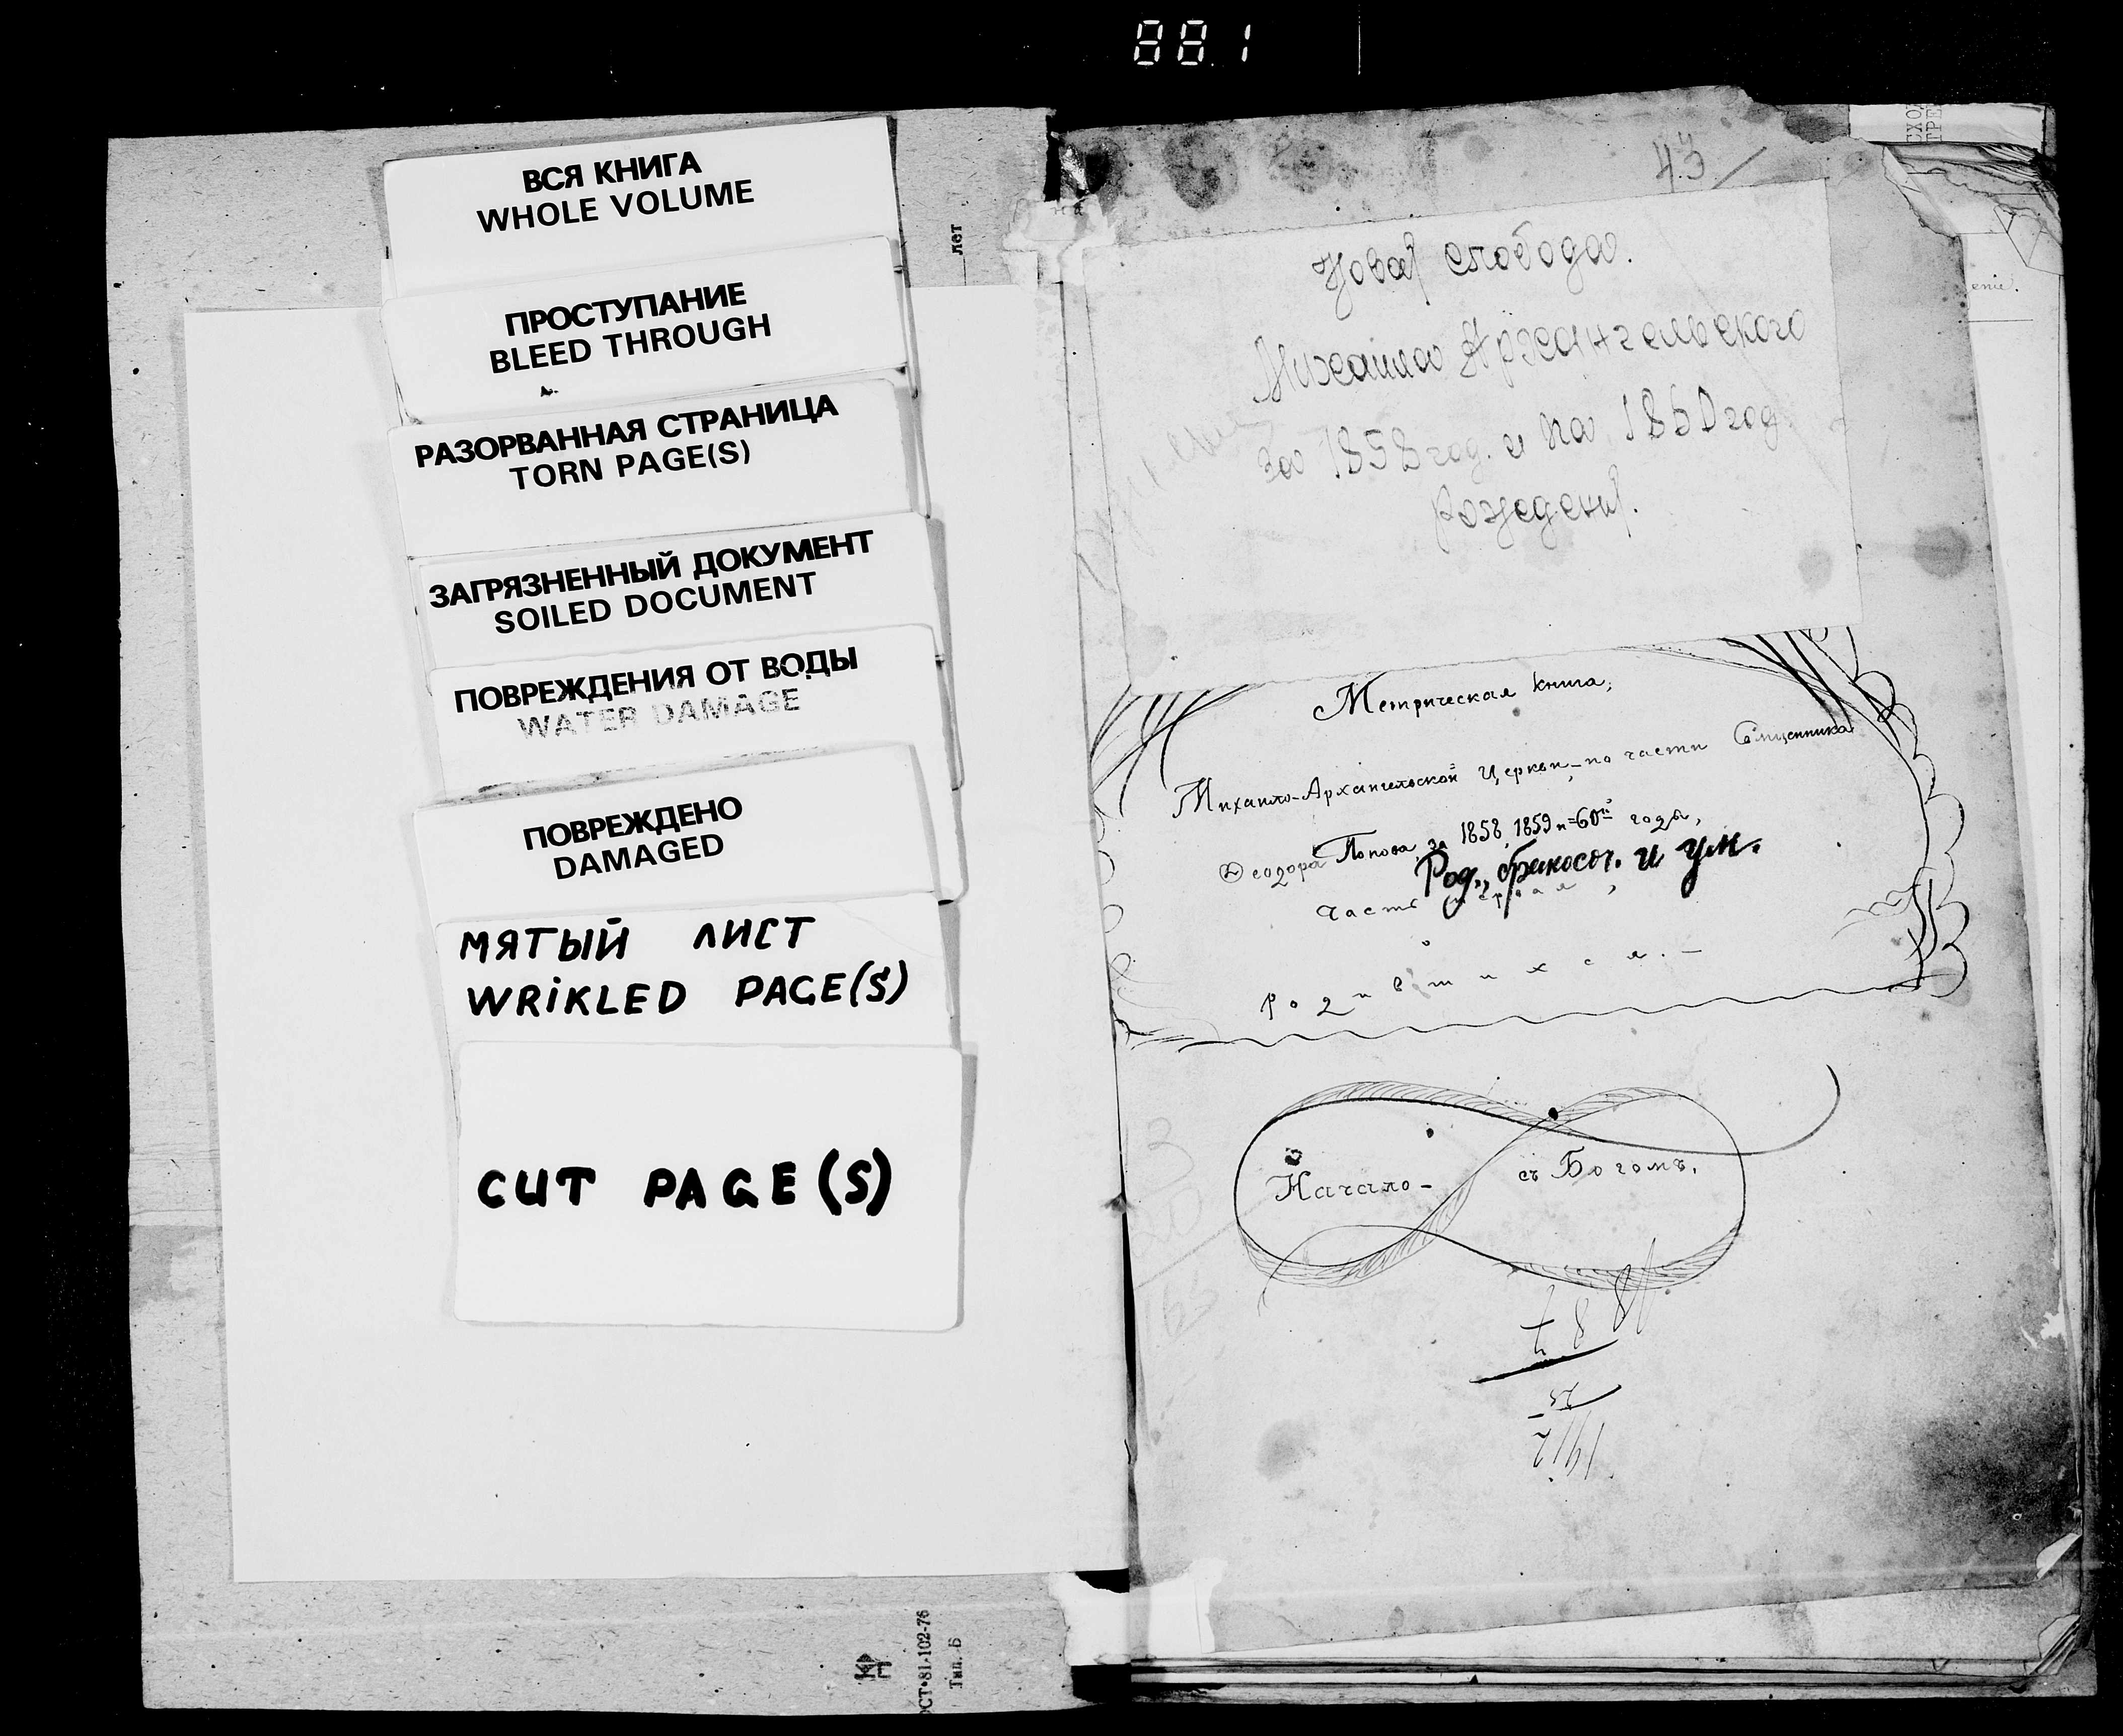 881
ВСЯ КНИГА
WHOLE VOLUME
ПРОСТУПАНИЕ
BLEED THROUGH
РАЗОРВАННАЯ СТРАНИЦА
TORN PAGE(S)
ЗАГРЯЗНЕННЫЙ ДОКУМЕНТ
SOILED DOCUMENT
ПОВРЕЖДЕНИЯ ОТ ВОДЫ
WATER DAMAGE
ПОВРЕЖДЕНО
DAMAGED
МЯТЫЙ ЛИСТ
WRiKLED PAGE(S)
CUT PAGE(S)
лет
ОСТ 81-102-76
Тип. Б
Новая слобода.
Михайло Архангельского
за 1858 год. и на 1860 год
рождения.
Метрическая книга,
Михаило-Архангельской Церкви, по части Священника
Ѳеодора Попова за 1858, 1859 и 60й годы,
Род., бракосоч. и ум.
Часть первая,
Родившихся.
Начало - съ Богомъ,